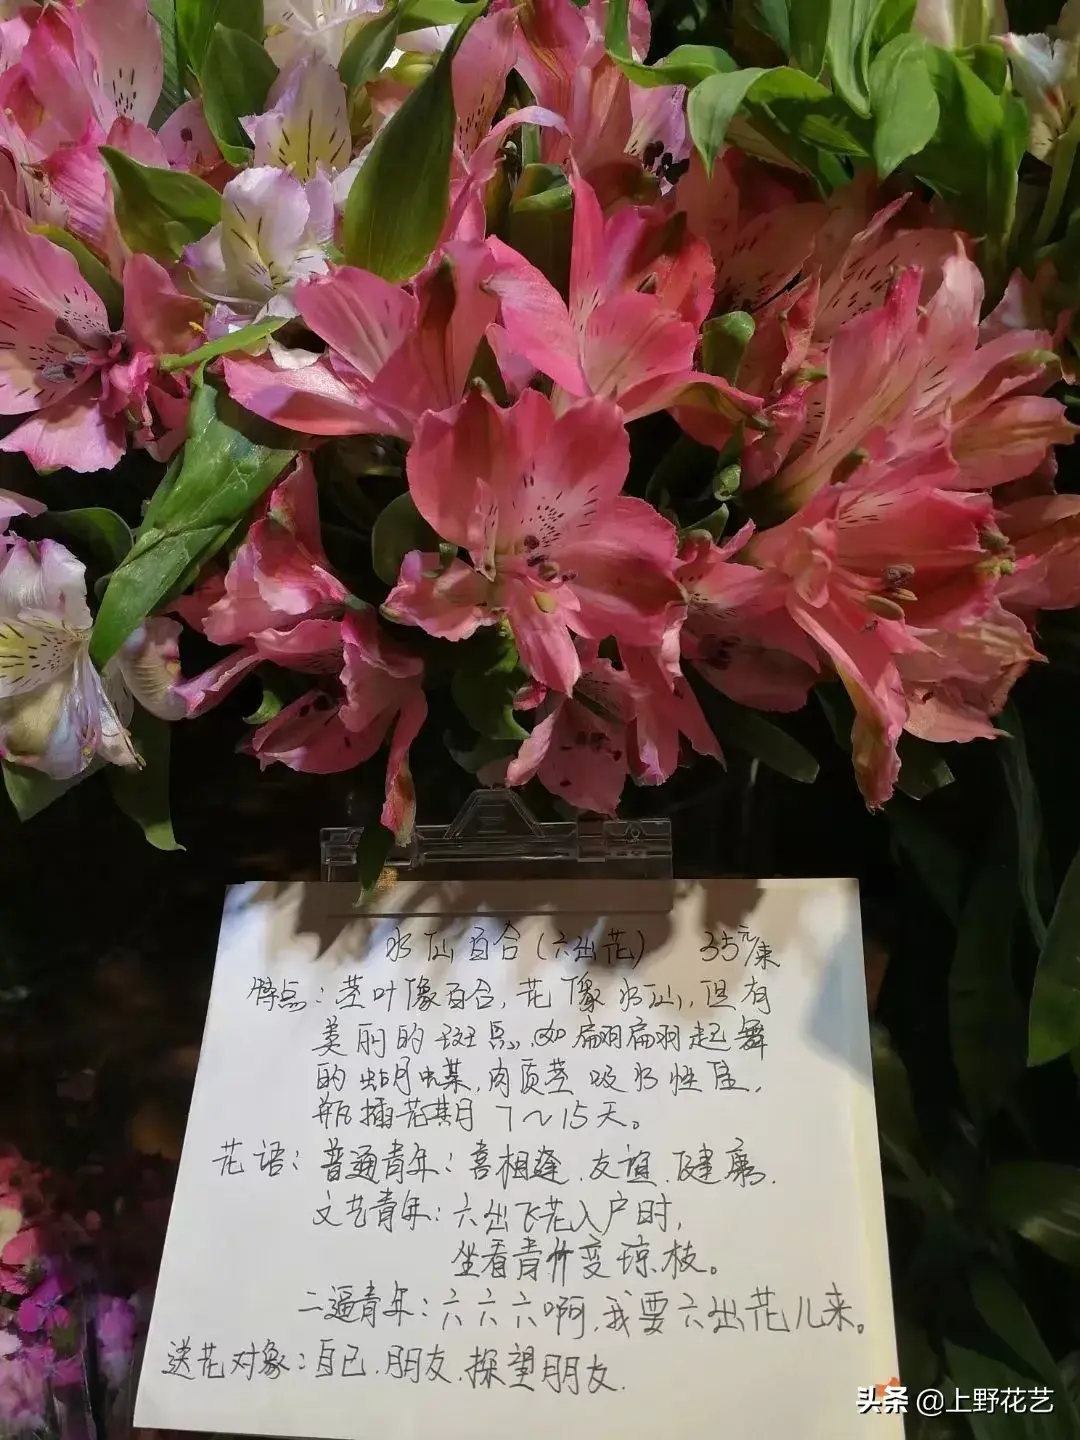 水仙百合(六出花) 35元/束
特点:茎叶像百合,花像水仙,但有
美丽的斑点,如翩翩起舞
的蝴蝶,肉质茎吸水性佳,
瓶插花期7~15天。
花语:普通青年:喜相逢、友谊、健康.
文艺青年:六出飞花入户时,
坐看青竹变琼枝。
二逼青年:六六六啊,我要六出花儿来。
送花对象:自己、朋友、探望朋友.
头条 @上野花艺